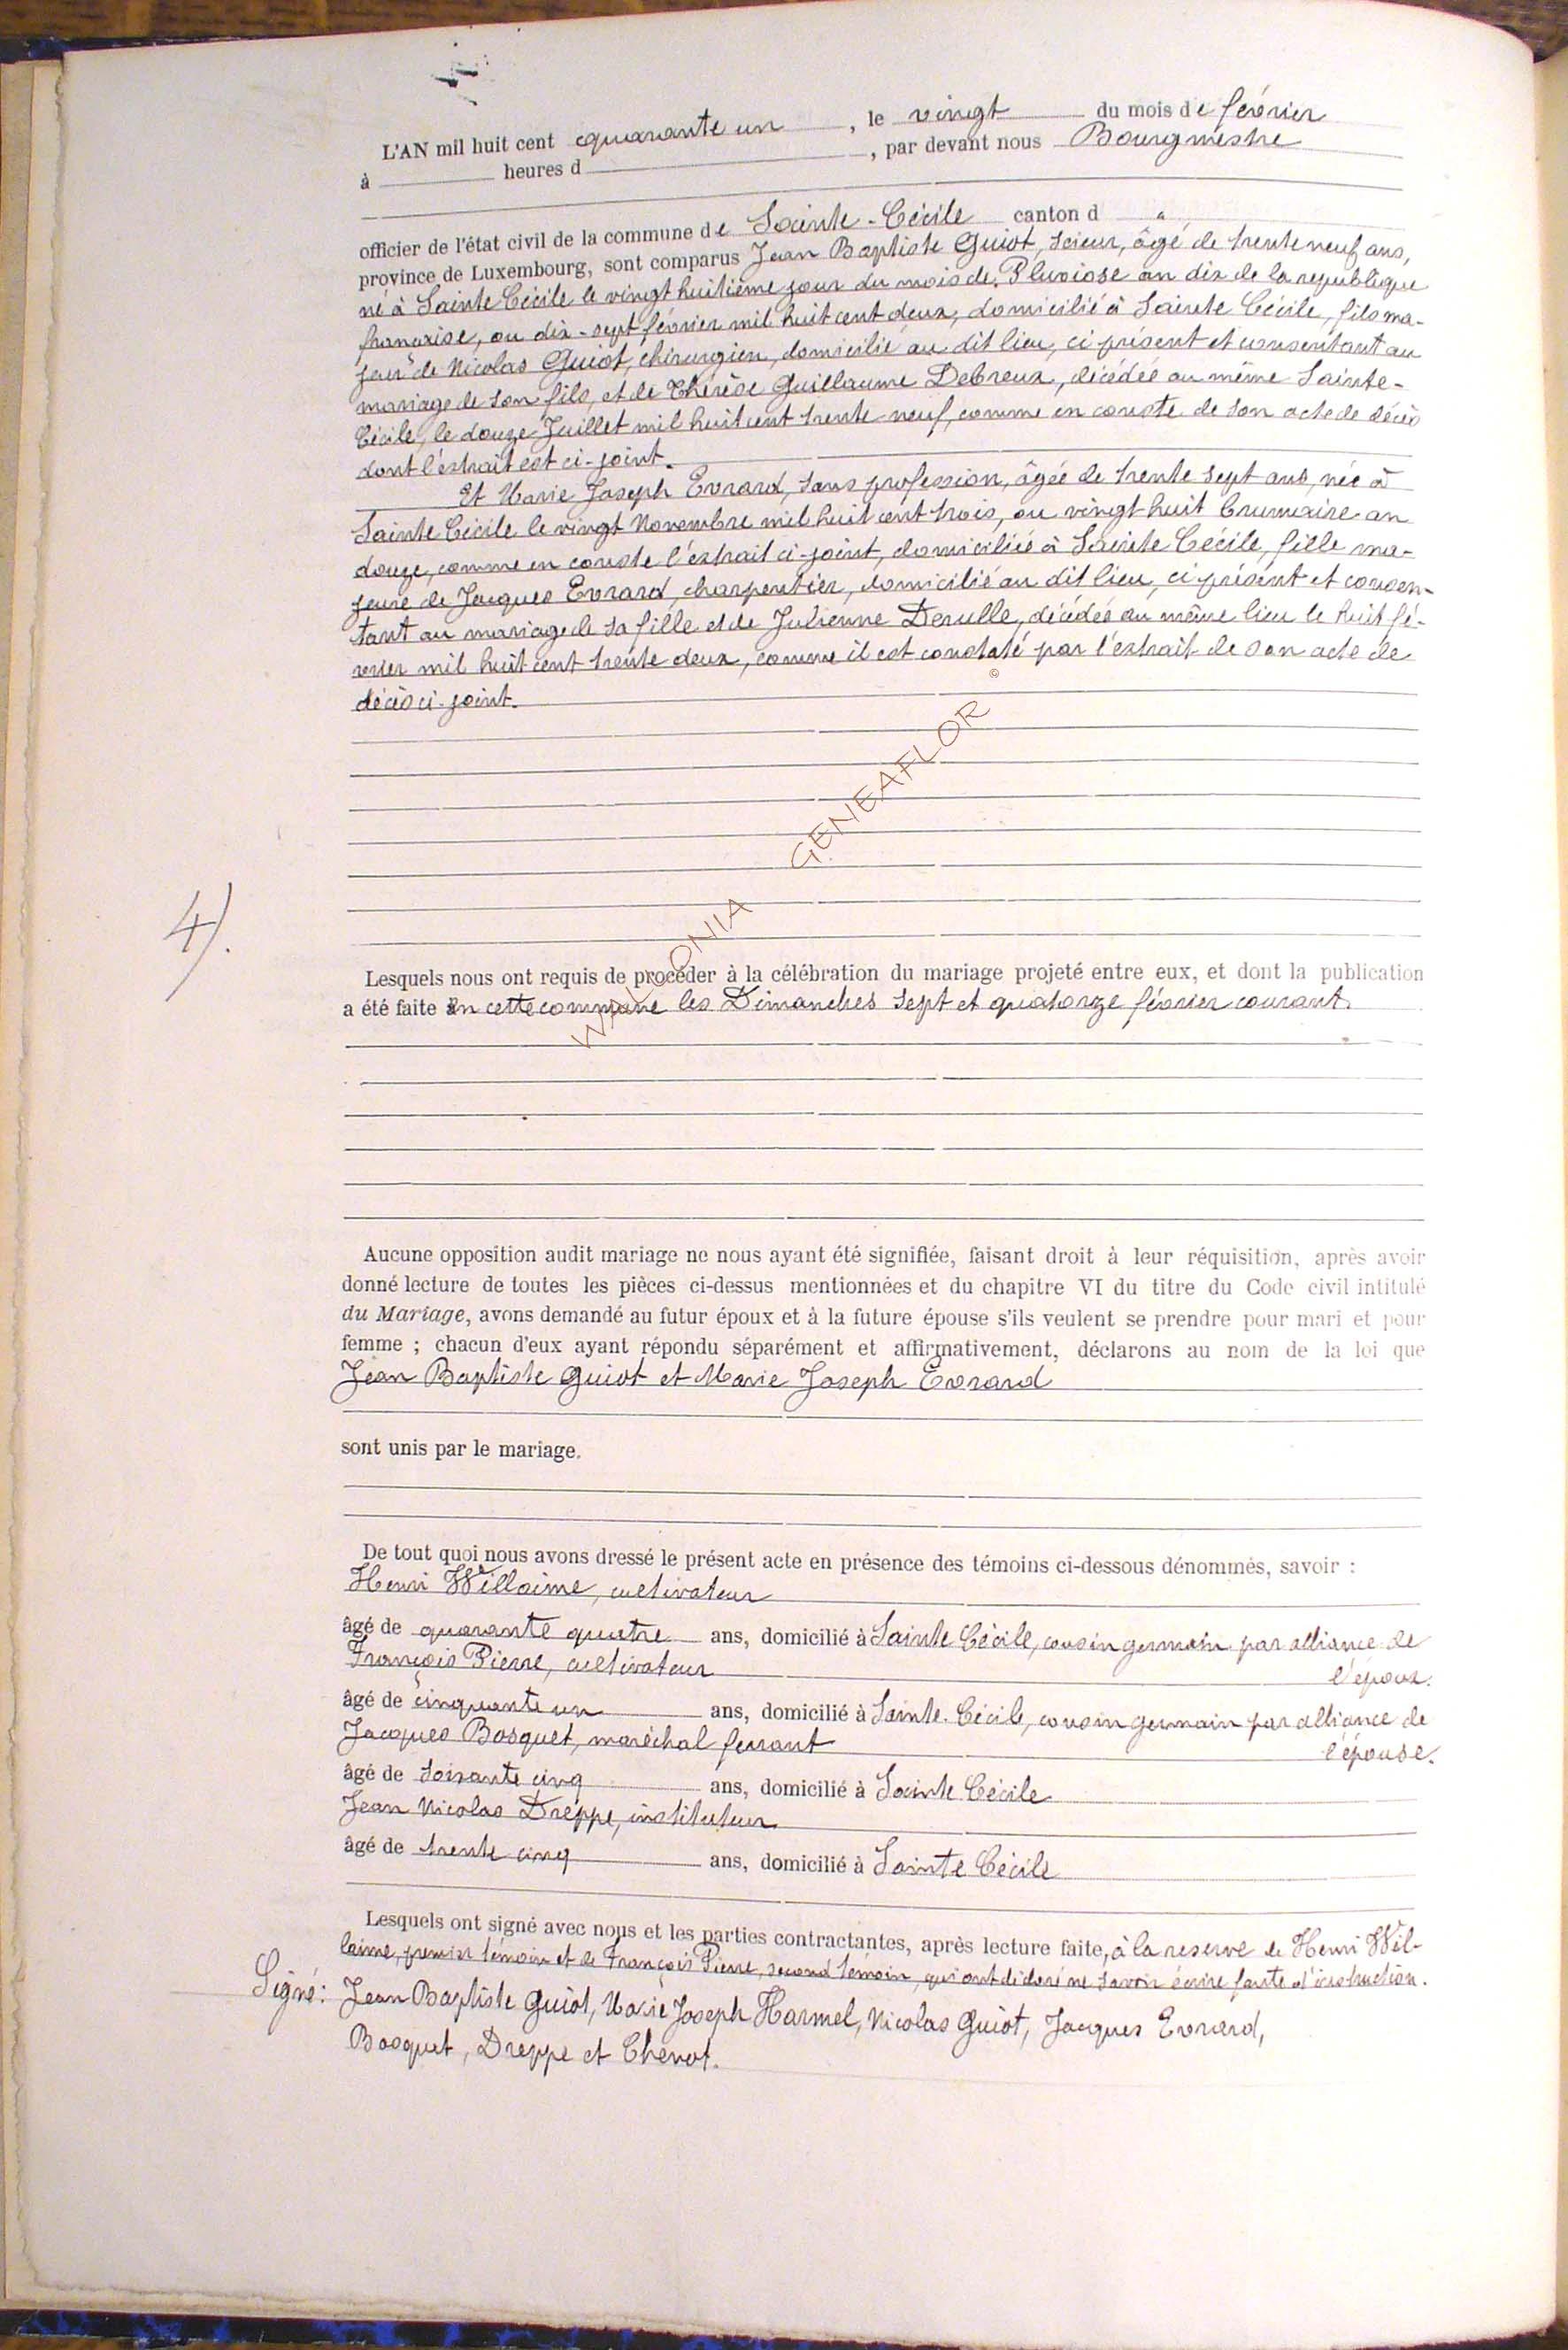 L'AN mil huit cent quarante un, le vingt du mois de février
à heures d , par devant nous Bourgmestre
officier de l'état civil de la commune de Sainte-Cécile canton d "
province de Luxembourg, sont comparus Jean Baptiste Guiot, scieur, âgé de trente neuf ans,
né à Sainte Cécile le vingt huitième jour du mois de Pluviose an dix de la republique
française, ou dix-sept février mil huit cent deux, domicilié à Sainte Cécile, fils ma-
jeur de Nicolas Guiot, chirurgien, domicilié au dit lieu, ci présent et consentant au
mariage de son fils, et de Thérèse Guillaume Debreux, décédée au même Sainte-
Cécile, le douze Juillet mil huit cent trente-neuf, comme en conste de son acte de décès
dont l'extrait est ci-joint.
Et Marie Joseph Evrard, sans profession, âgée de trente sept ans, née à
Sainte Cécile le vingt Novembre mil huit cent trois, ou vingt huit brumaire an
douze, comme en conste l'extrait ci-joint, domiciliée à Sainte Cécile, fille ma-
jeure de Jacques Evrard, charpentier, domicilié au dit lieu, ci présent et consen-
tant au mariage de sa fille et de Julienne Derulle, décédée au même lieu le huit fé-
vrier mil huit cent trente deux, comme il est constaté par l'extrait de son acte de
décès ci-joint.
©
WALLONIA GENEAFLOR
4).
Lesquels nous ont requis de procéder à la célébration du mariage projeté entre eux, et dont la publication
a été faite en cette commune les Dimanches sept et quatorze février courant.
Aucune opposition audit mariage ne nous ayant été signifiée, faisant droit à leur réquisition, après avoir
donné lecture de toutes les pièces ci-dessus mentionnées et du chapitre VI du titre du Code civil intitulé
du Mariage, avons demandé au futur époux et à la future épouse s'ils veulent se prendre pour mari et pour
femme ; chacun d'eux ayant répondu séparément et affirmativement, déclarons au nom de la loi que
Jean Baptiste Guiot et Marie Joseph Evrard
sont unis par le mariage.
De tout quoi nous avons dressé le présent acte en présence des témoins ci-dessous dénommés, savoir :
Henri Willaime, cultivateur
âgé de quarante quatre ans, domicilié à Sainte Cécile, cousin germain par alliance de
l'époux.
François Pierre, cultivateur
âgé de cinquante un ans, domicilié à Sainte-Cécile, cousin germain par alliance de
l'épouse.
Jacques Bosquet, maréchal ferrant
âgé de soixante cinq ans, domicilié à Sainte Cécile
Jean Nicolas Dreppe, instituteur
âgé de trente cinq ans, domicilié à Sainte Cécile
Lesquels ont signé avec nous et les parties contractantes, après lecture faite, à la reserve de Henri Wil-
laime, premier témoin et de François Pierre, second témoin, qui ont déclaré ne savoir écrire faute d'instruction.
Signé: Jean Baptiste Guiot, Marie Joseph Harmel, Nicolas Guiot, Jacques Evrard,
Bosquet, Dreppe et Chenot.